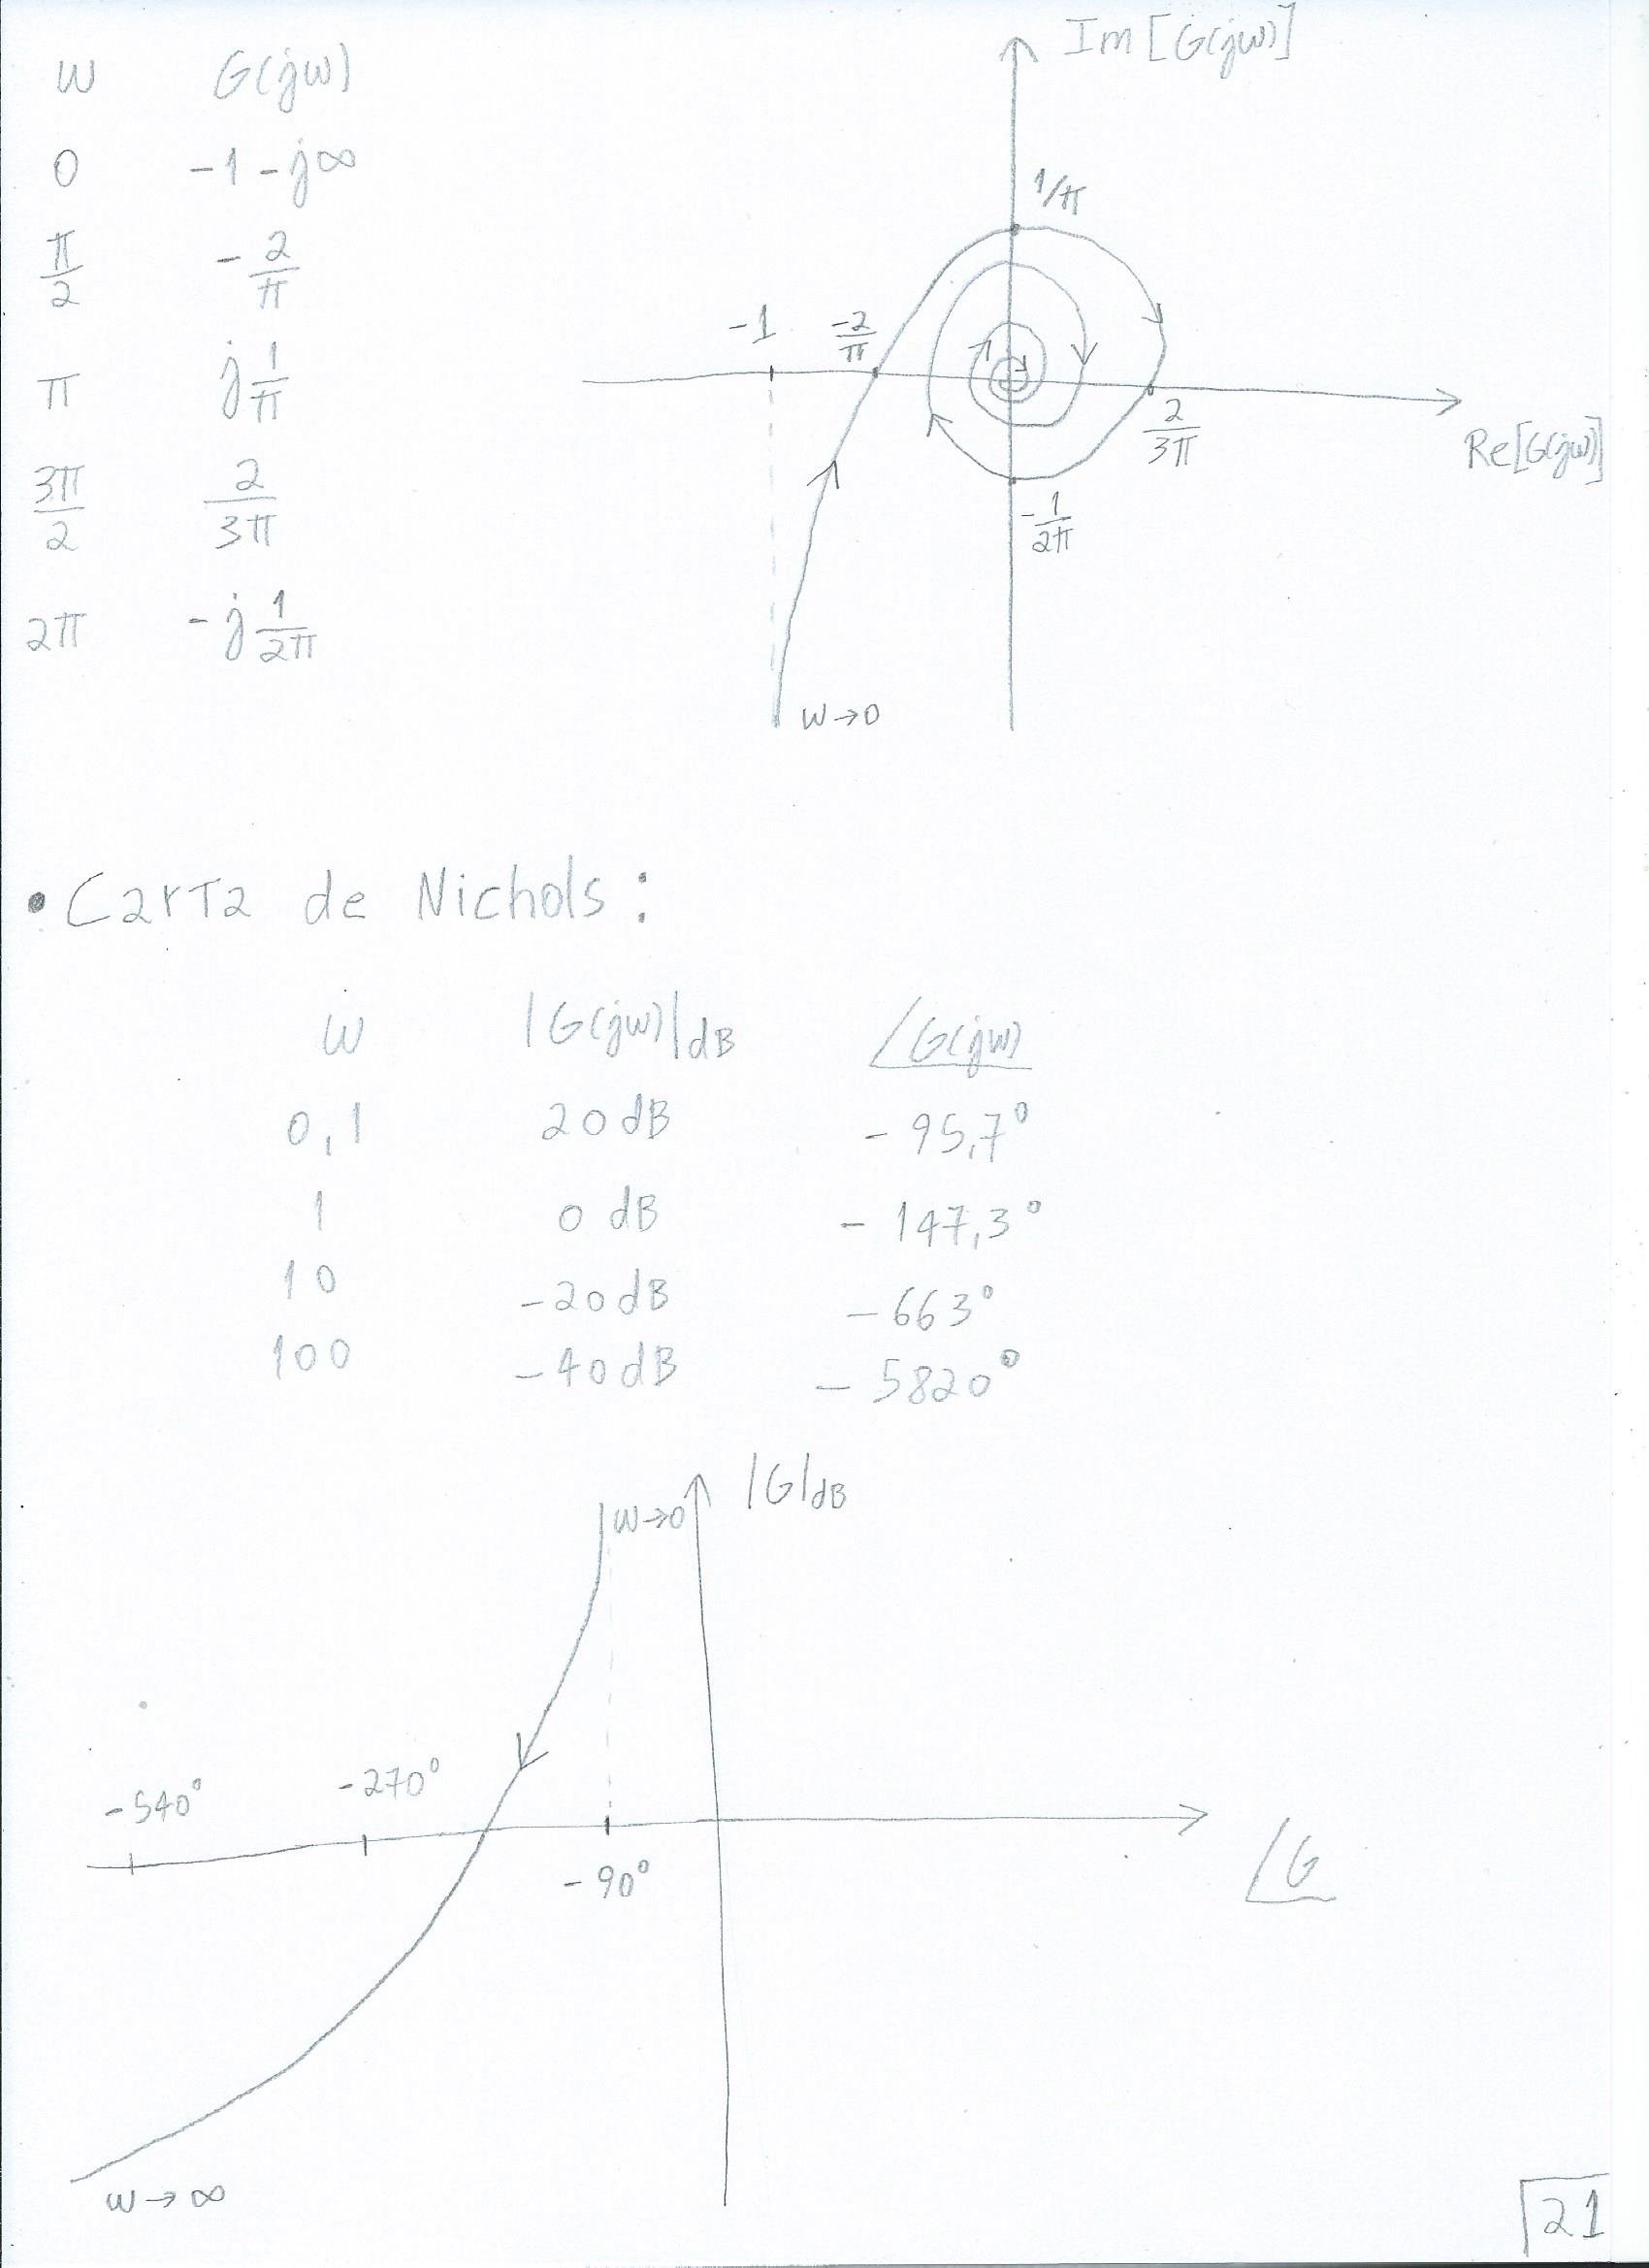 w G(jw)
0 -1 - j∞
π/2 -2/π
π j 1/π
3π/2 2/3π
2π -j 1/2π
Im[G(jw)]
1/π
-1 -2/π
2/3π
Re[G(jw)]
-1/2π
w→0
• Carta de Nichols:
w |G(jw)|dB ∠G(jw)
0,1 20 dB - 95,7°
1 0 dB - 147,3°
10 -20 dB - 663°
100 -40 dB - 5820°
|G|dB
w→0
-540° -270°
-90°
∠G
w→∞
21